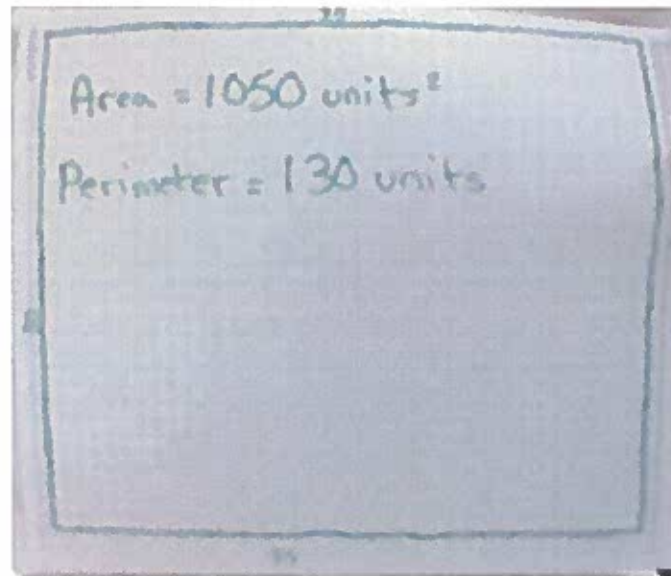 Area = 1050 units²
Perimeter = 130 units